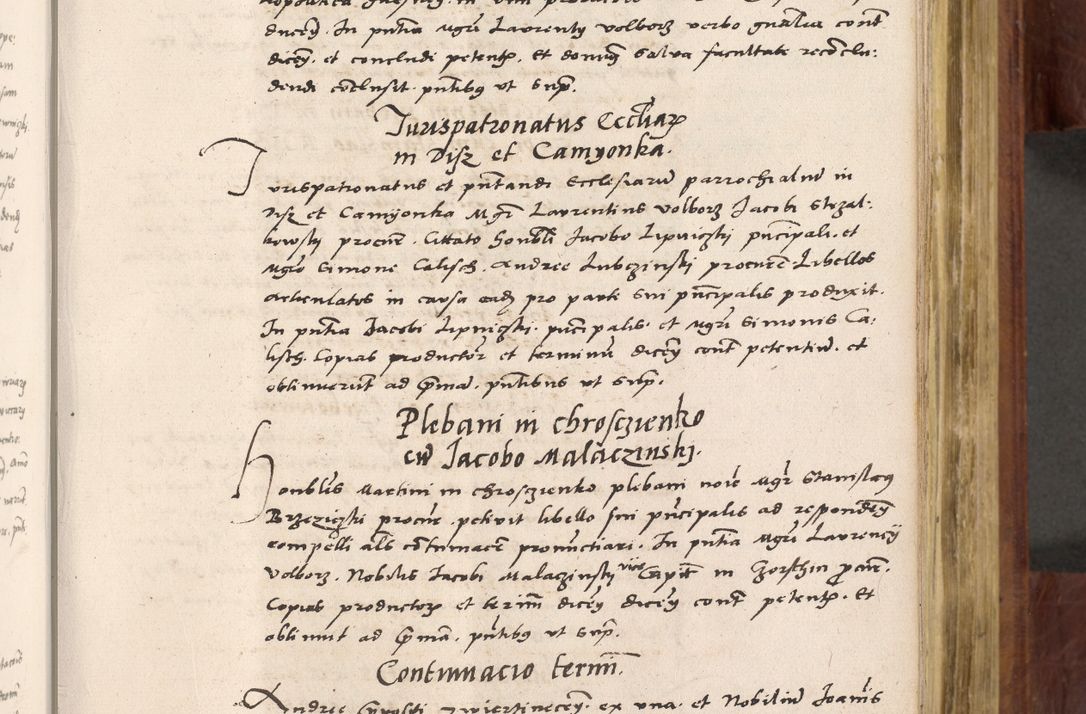 ducen. In pntia Mgri Laurenty Volborz verbo gnalia cont
dicen. et concludi petentis. Et donus salva facultate reconclu:
dendi conclusit. pntibus ut supra.
Jurispatronatus Eccliarum
in Disz et Camyonka.
Jurispatronatus et pntandi Ecclesiarum parrochialium in
Disz et Camyonka Mgr Laurentius Volborz Jacobi Strzal:
kowski procur. Citato Honbli Jacobo Lipniczki principali. et
Mgro Simone Calisch. Andree Lubczinski procure. Libellos
articulatos in causa eadem pro parte sui principalis produxit.
In pntia Jacobi Lipniczki. principalis. et Mgri Simonis Ca:
lisch. Copias productor et terminum dicen cont petentium. et
obtinuerunt ad primam. pntibus ut supra.
Plebani in chrosczienko
cum Jacobo Malaczinski.
Honblis Martini in Chrosczienko plebani noie Mgr Stanislaus
Brzeziczki procur. petivit libello sui principalis ad respondendum
compelli als contumacem pronunctiari. In pntia Mgri Laurency
Volborz. Nobilis Jacobi Malaczinski vice Capit in Gorsthin procur.
Copias productor et terminum dicen dicen cont petentis. Et
obtinuit ad primam. pntibus ut supra.
Contumacio termini.
Andree et Nobilium Joannis